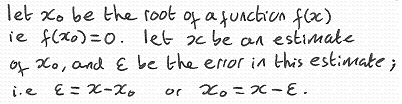 let x₀ be the root of a function f(x)
ie f(x₀)=0. let x be an estimate
of x₀, and ε be the error in this estimate;
i.e ε = x-x₀ or x₀ = x-ε.